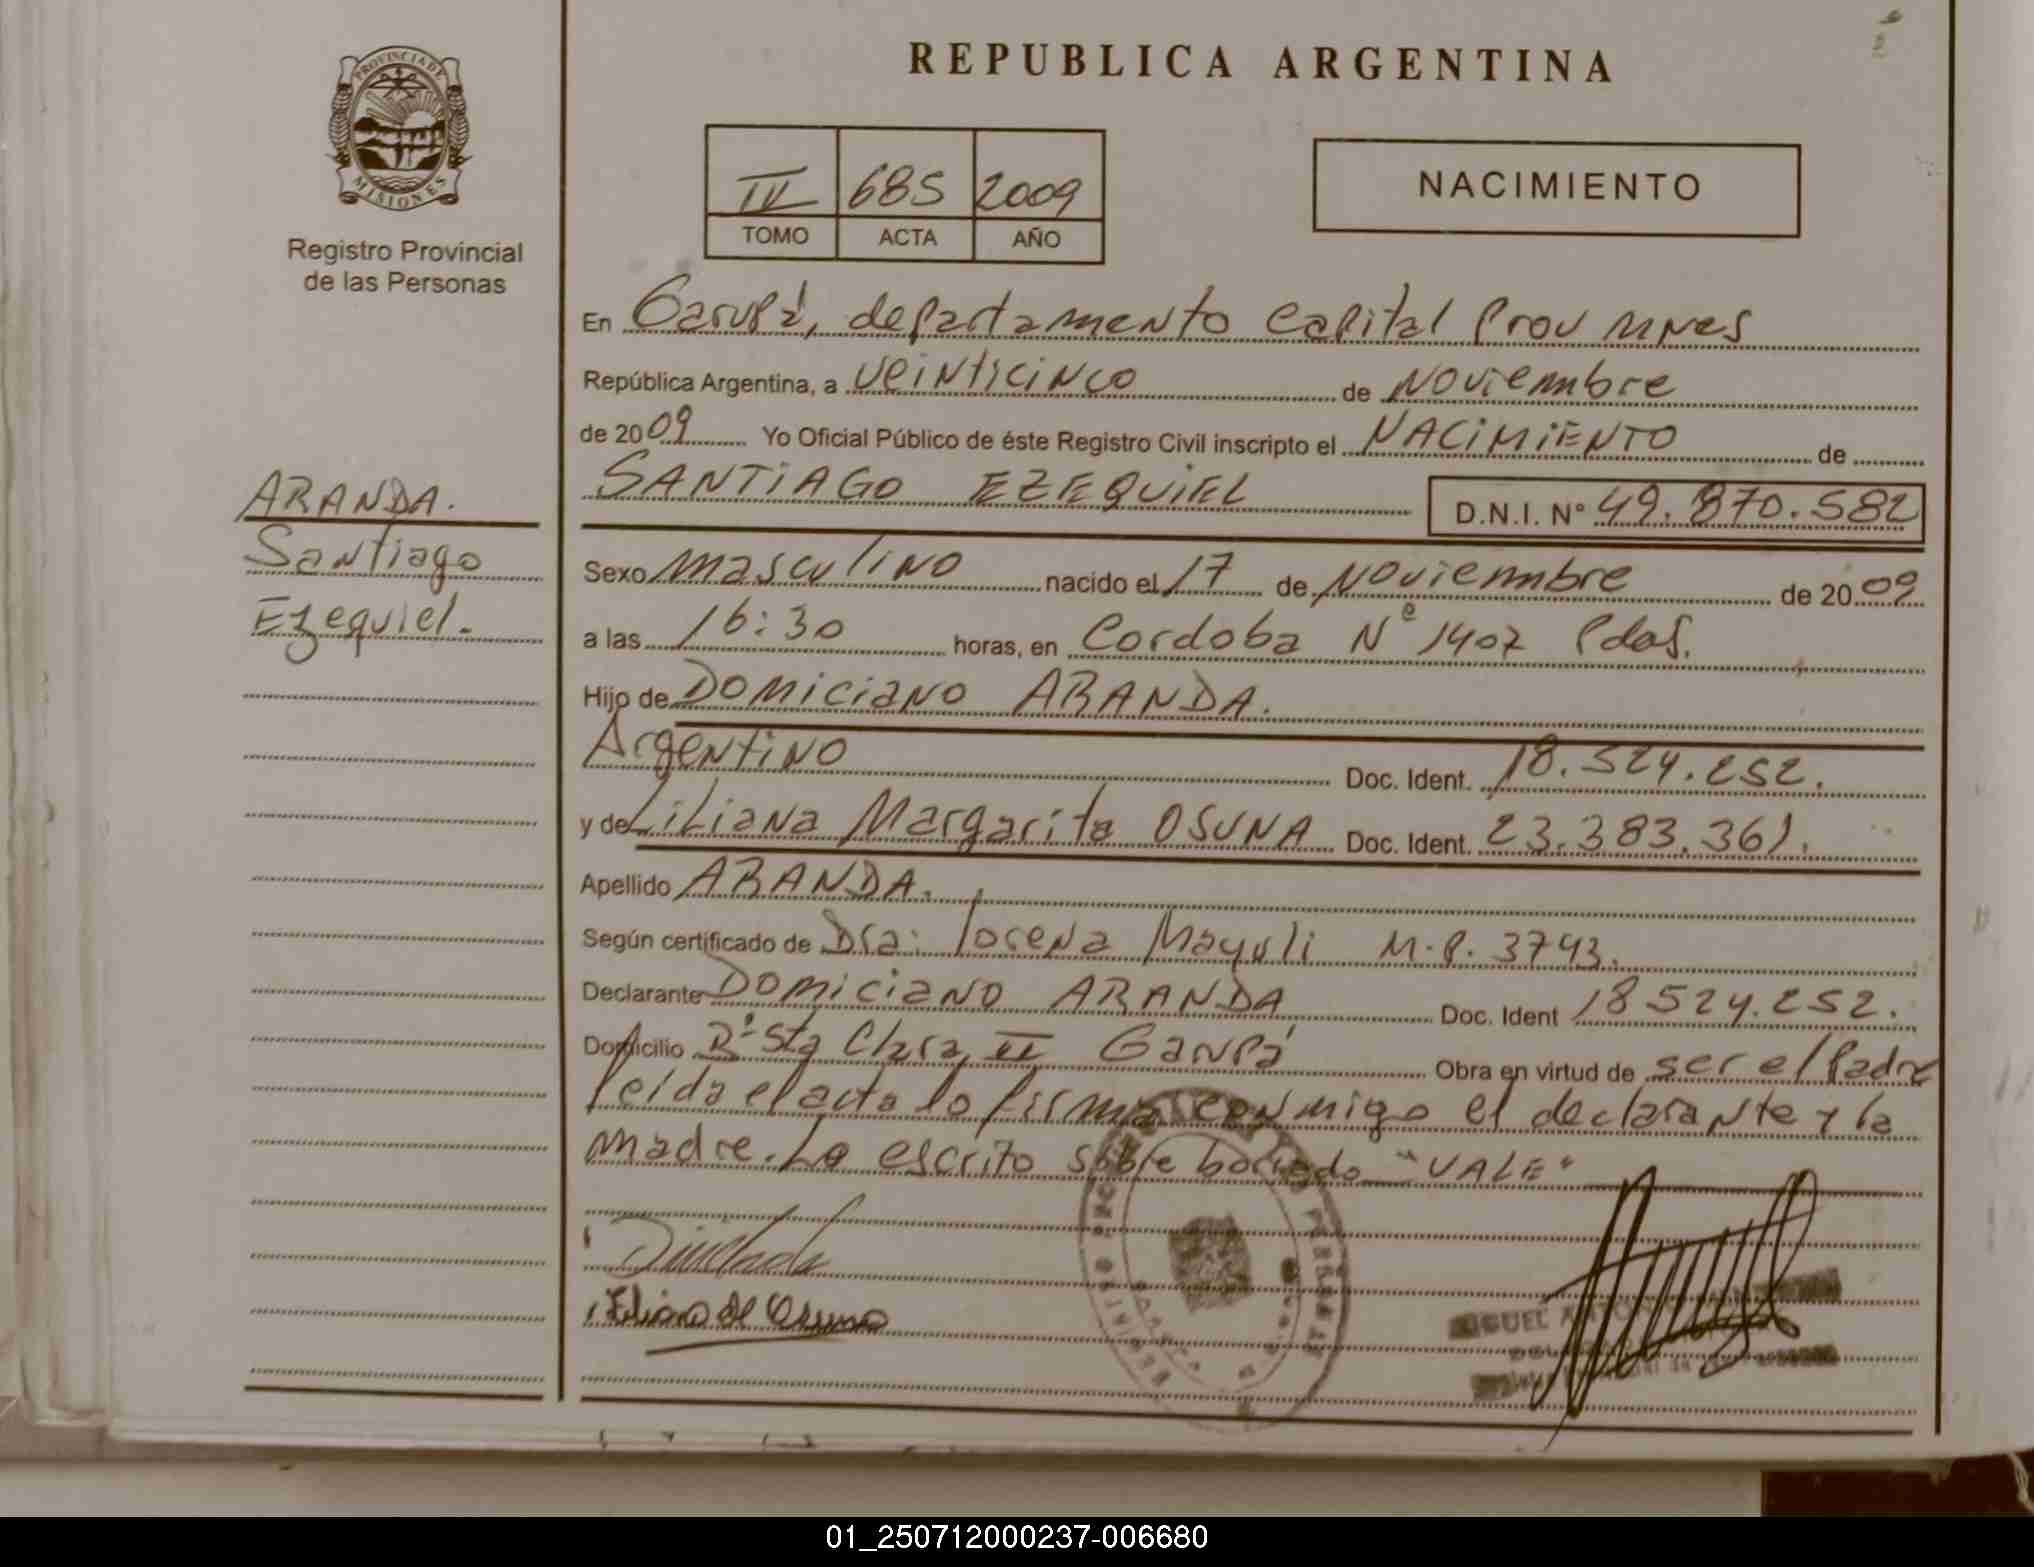 REPUBLICA ARGENTINA
PROVINCIA DE
MISIONES
Registro Provincial
de las Personas
IV 685 2009
TOMO ACTA AÑO
NACIMIENTO
En Garupá, departamento capital Prov Mnes
República Argentina, a veinticinco de Noviembre
de 2009 Yo Oficial Público de éste Registro Civil inscripto el NACIMIENTO de
SANTIAGO EZEQUIEL D.N.I. N° 49.870.582
ARANDA.
Santiago
Ezequiel.
Sexo masculino nacido el 17 de Noviembre de 2009
a las 16:30 horas, en Cordoba Nº 1407 Pdas.
Hijo de Domiciano ARANDA.
Argentino Doc. Ident. 18.524.252.
y de Liliana Margarita OSUNA Doc. Ident. 23.383.361.
Apellido ARANDA.
Según certificado de Dra: Lorena Mayuli M.P. 3743.
Declarante Domiciano ARANDA Doc. Ident 18524.252.
Domicilio Bº Sta Clara II Garupá Obra en virtud de ser el Padre
leida el acta lo firma conmigo el declarante y la
madre. Lo escrito sobre borrado "VALE"
01_250712000237-006680